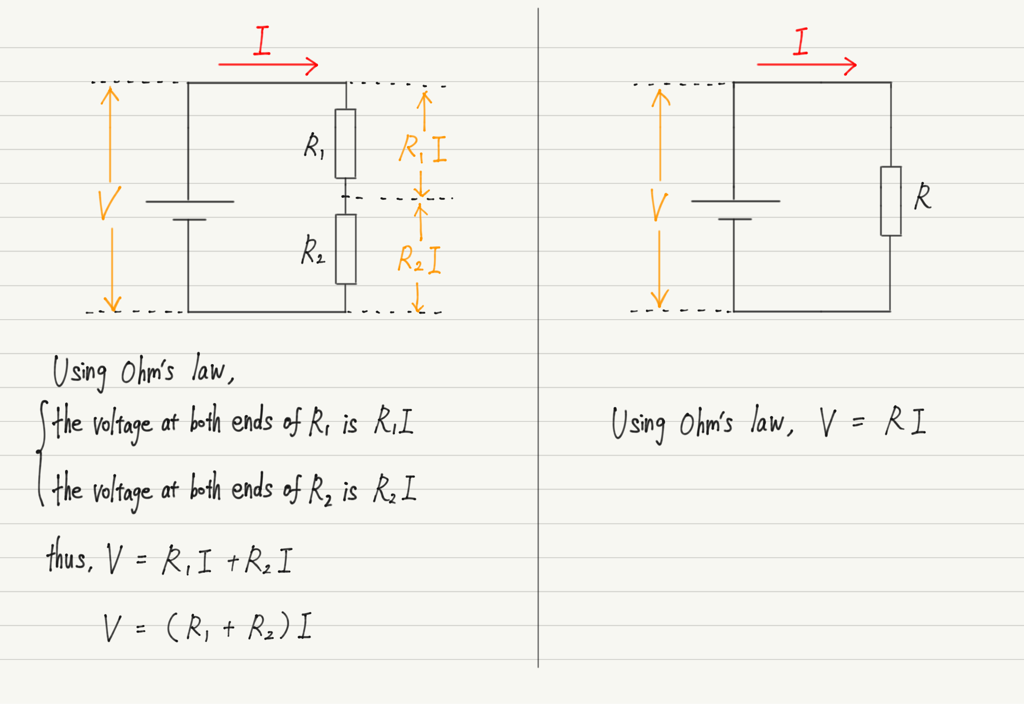 I
V
R₁
R₁I
R₂
R₂I
Using Ohm's law,
the voltage at both ends of R₁ is R₁I
the voltage at both ends of R₂ is R₂I
thus, V = R₁I + R₂I
V = (R₁ + R₂)I
I
V
R
Using Ohm's law, V = RI